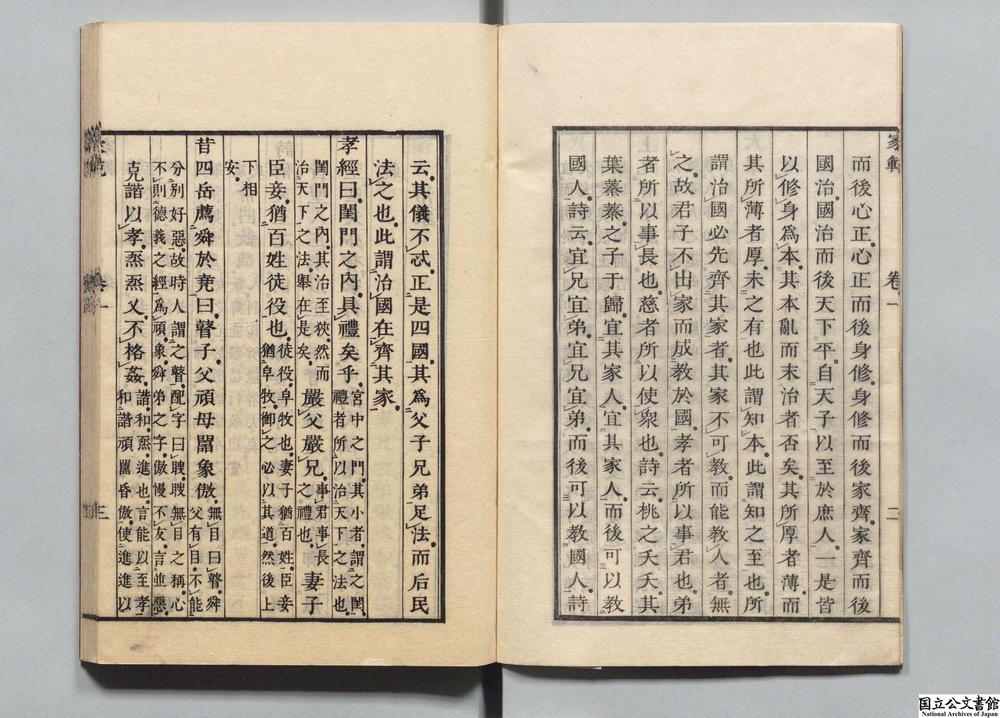 家範　卷一　二
而後心正。心正而後身修。身修而後家齊。家齊而後
國治。國治而後天下平。自天子以至於庶人。一是皆
以修身爲本。其本亂而末治者否矣。其所厚者薄。而
其所薄者厚。未之有也。此謂知本。此謂知之至也。所
謂治國必先齊其家者。其家不可教。而能教人者無
之。故君子不出家而成教於國。孝者所以事君也。弟
者所以事長也。慈者所以使衆也。詩云。桃之夭夭。其
葉蓁蓁。之子于歸。宜其家人。宜其家人。而後可以教
國人。詩云。宜兄宜弟。宜兄宜弟。而後可以教國人。詩
云。其儀不忒。正是四國。其爲父子兄弟足法。而后民
法之也。此謂治國在齊其家。
孝經曰。閨門之内。具禮矣乎。宮中之門。其小者。謂之閨。
禮者所以治天下之法也。
閨門之内。其治至狹。然而
治天下之法。舉在是矣。嚴父嚴兄。事君事長
之禮也。妻子
臣妾。猶百姓徒役也。徒役。皁牧也。妻子猶百姓。臣妾
猶皁牧。御之必以其道。然後上
下相
安。
昔四岳薦舜於堯曰。瞽子。父頑母嚚象傲。無目曰瞽。舜
父有目。不能
分別好惡。故時人謂之瞽。配字曰瞍。瞍無目之稱。心
不則德義之經爲頑。象舜弟之字。傲慢不友。言並惡。
克諧以孝。烝烝乂。不格姦。諧和。烝進也。言能以至孝
和諧頑嚚昏傲。使進進以
卷一
三
国立公文書館
National Archives of Japan